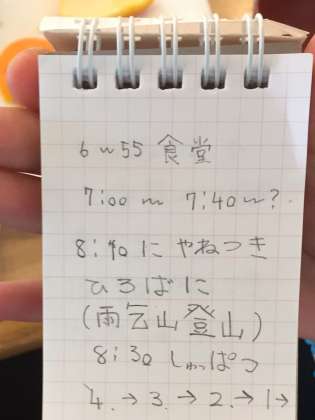 6〜55 食堂
7:00 〜 7:40〜?
8:10 に やねつき
ひろばに
(雨乞山登山)
8:30 しゅっぱつ
4.→ 3.→ 2.→ 1→